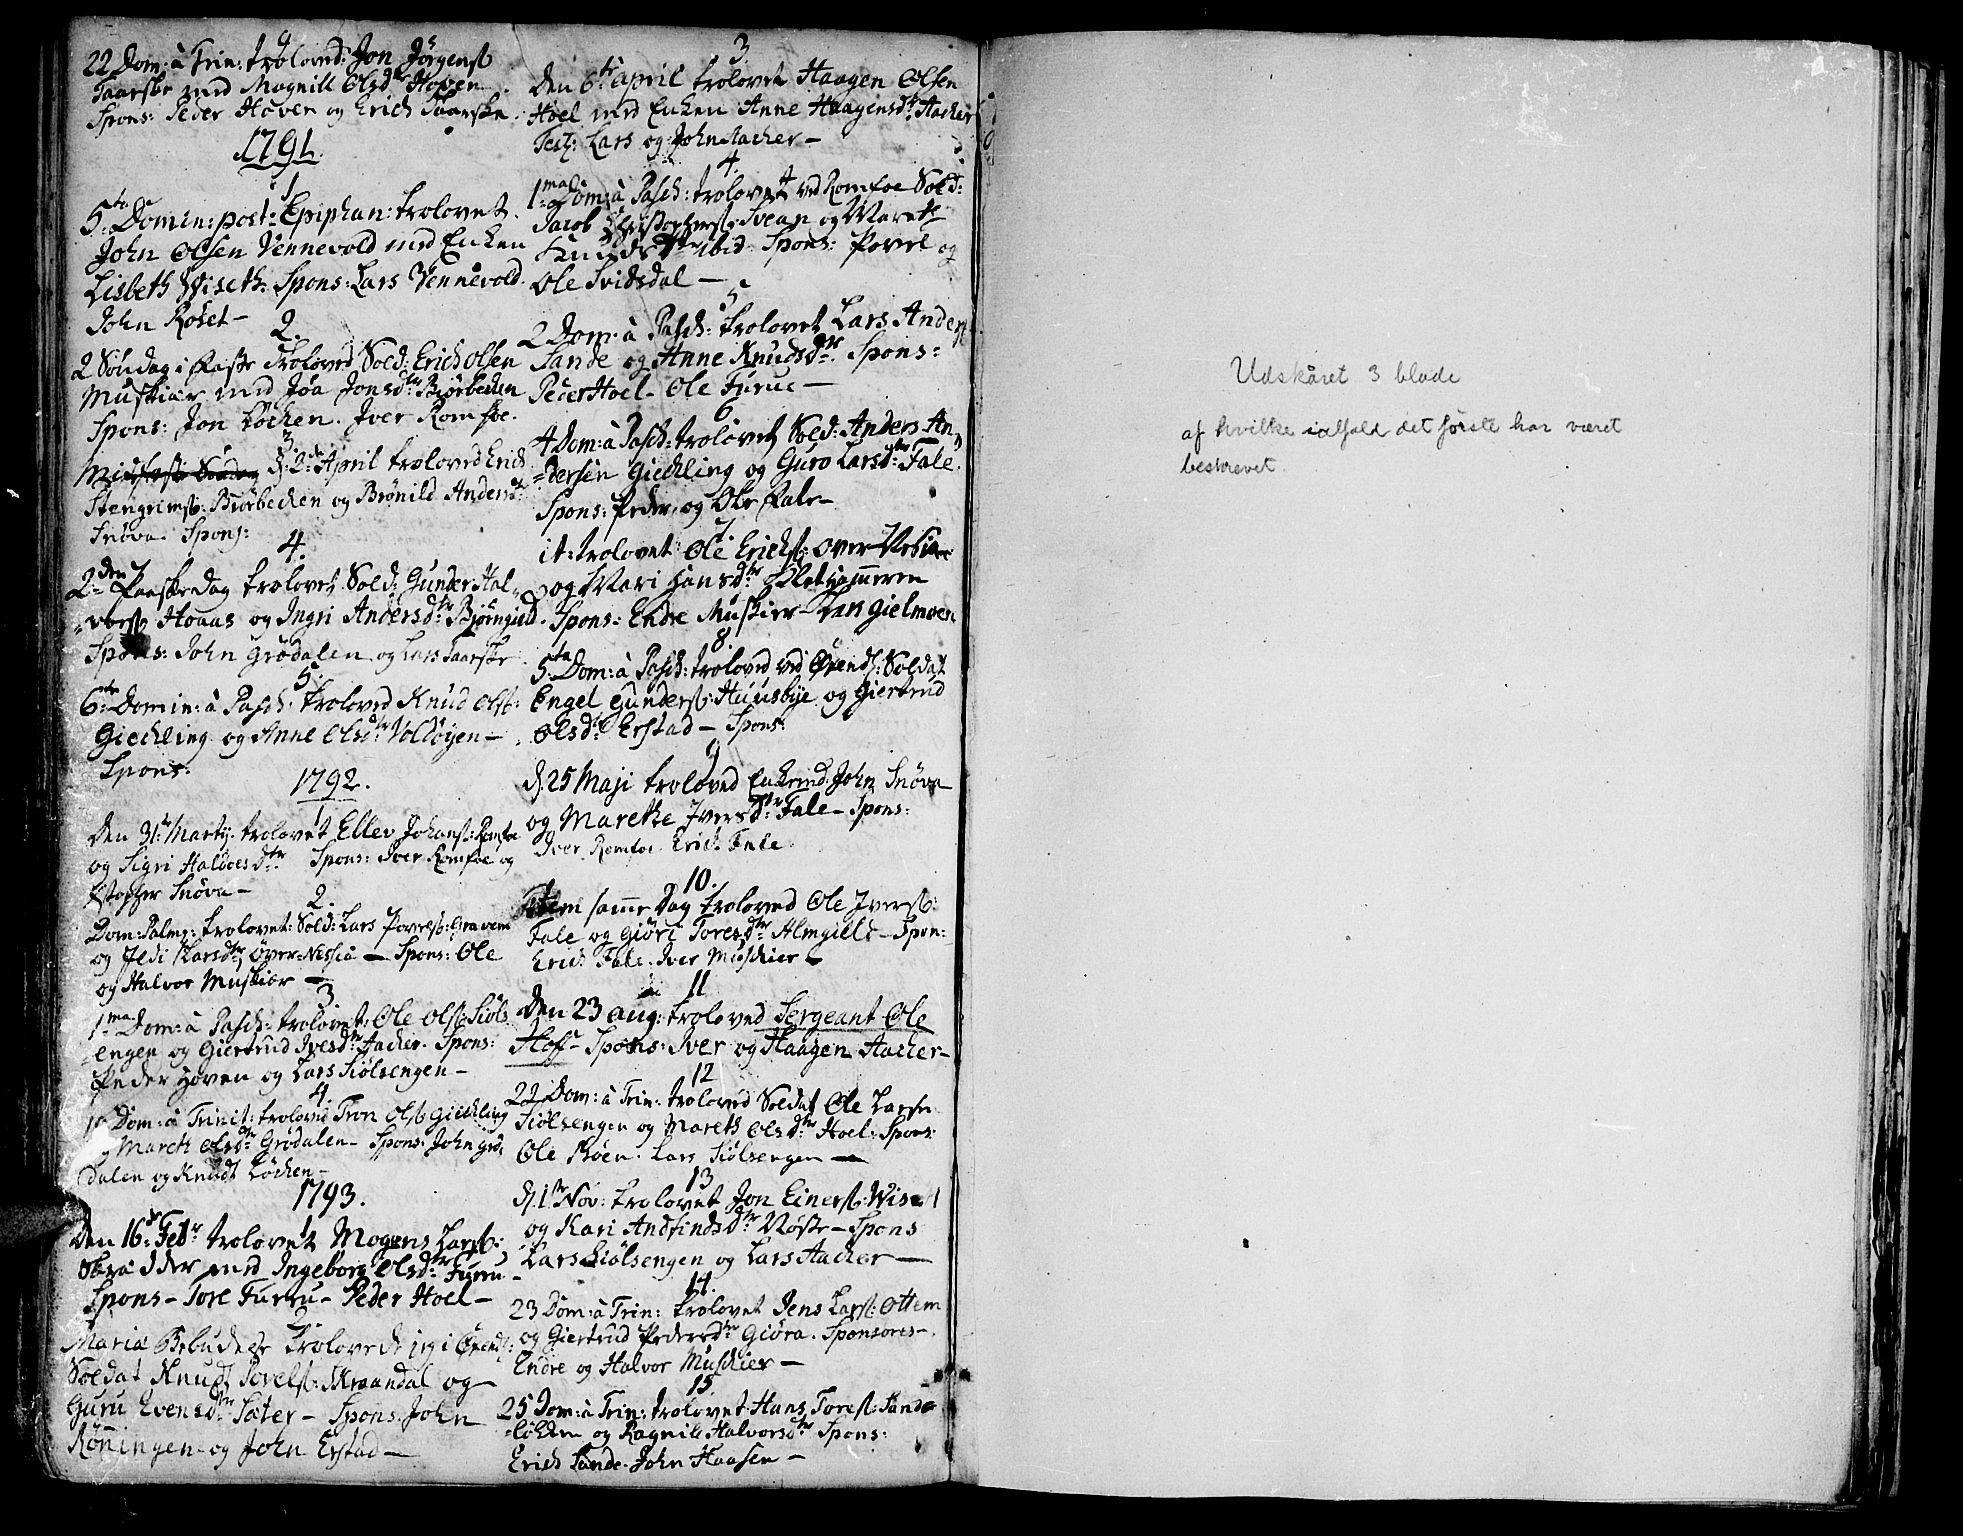 9
22 Dom: à Trin: trolovd: Jon Jörgenss
Taarske med Magnill Olsdtr Hoven
Spons: Peder Hoven og Erich Taarske
1791.
1
5ta Domin: post: Epiphan: trolovet
John Olsen Vennevold med Enken
Lisbeth Wiseth: Spons: Lars Vennevold
John Roset-
2.
2 Söndag i Faste trolovd Sold: Erich Olsen
Muskiær med Joa Jonsdtr Biörbechen
Spons: Jon Löchen. Iver Romfoe.
3
Midfaste Söndag D: 2den April trolovd Erich
Stengrimss: Biörbechen og Brönild Andersdtr
Snöva. Spons:
4.
2den Paaskedag trolovet Sold: Gunder Hal-
-vorss Hoaas og Ingri Andersdtr Björngied
Spons: John Grödalen og Lars Taarske
5.
6te Domin: à Pasch: trolovd Knud Olss:
Giechling og Anne Olsdtr Voldöyen-
Spons:
1792.
1
Den 31 Martij trolovet Ellev Johanss: Romfoe
og Sigri Haldoesdtr Spons: Iver Romfoe og
Snöva-
2.
Dom: Palm: trolovet: Sold: Lars Povelss: Gravem
og Larsdtr Över-Nessia — Spons: Ole
og Halvor Muskiær —
3
1ma Dom: à Pasch: trolovet: Ole Olss: Siöls
engen og Giertrud Ivesdtr Aacher. Spons:
Peder Hoven og Lars Siölsengen-
4.
Dom: à Trinit: trolovd Tron Olss Giechling
Mareth Olsdtr Grödalen- Spons: John Grö
dalen og Knudt Löchen-
1793.
1
Den 16de Febr trolovet Mogens Larss:
med Ingeborg Olsdtr Furru
Spons- Tore Furru- Peder Hoel-
2.
Mariæ Bebudelse trolovede jeg i Öxend:
Soldat Knudt Povelss: Skrondal og
Guru Evensdtr Sæter- Spons: John
Rönningen- og John Erstad-
3.
Den 6te April trolovet Haagen Olsen
Hoel med Enken Anne Haagensdtr Aacher
Test: Lars og John Aacher-
4.
1ma Dom: à Pasch: trolovet ved Romfoe Sold:
Jacob Christophers: Svean og Mareth
Knudsdtr ibid: Spons: Povel og
Ole Svidsdal-
5
2 Dom: à Pasch: trolovet Lars Anderss
Sande og Anne Knudsdtr Spons:
Peder Hoel- Ole Furue-
6
4 Dom: à Pasch: trolovet Sold: Anders An
-dersen Giechling og Guro Larsdtr Fale.
Spons: Peder og Ole Fale-
7.
it: trolovet Ole Erichs: Over
og Mari Hansdtr
Spons: Endre Muskier- Lars Gielmoen
8.
5ta Dom: à Pasch: trolovd ved Öxend: Soldat
Engel Gunderss: Huusbye og Giertrud
Olsdtr Erstad- Spons:
9
D. 25 Maji trolovd Enkemd John Snöva
og Marethe Iversdtr Fale- Spons:
Iver Romfoe. Erich Fale.
10.
Item samme Dag troloved Ole Iverss:
Fale og Giöri Toresdtr Almgille- Spon:
Erich Fale. Iver Muskier
11
Den 23 Aug: trolovd Sergeant Ole
Hoff- Spons: Iver og Haagen Aacher-
12
22 Dom: à Trin: trolovd Soldat Ole Larsn
Siölsengen og Mareth Olsdtr Hoel: Spons:
Ole Röen. Lars Siölsengen —
13
D. 1ste Nov: trolovet Jon Einerss: Wiset
og Kari Andfindsdtr Nöste- Spons
Lars Siölsengen og Lars Aacher —
14.
23 Dom: à Trin: trolovet Jens Larss: Ottem
og Giertrud Pedersdtr Giöra. Sponsores-
Endre og Halvor Muschier-
15.
25 Dom: à Trin: trolovet Hans Toress: Sande
-löchen og Ragnild Halvorsdtr Spons:
Erich Sande. John Haasen-
Udskåret 3 blade
af hvilke ialfald det første har været
beskrevet.